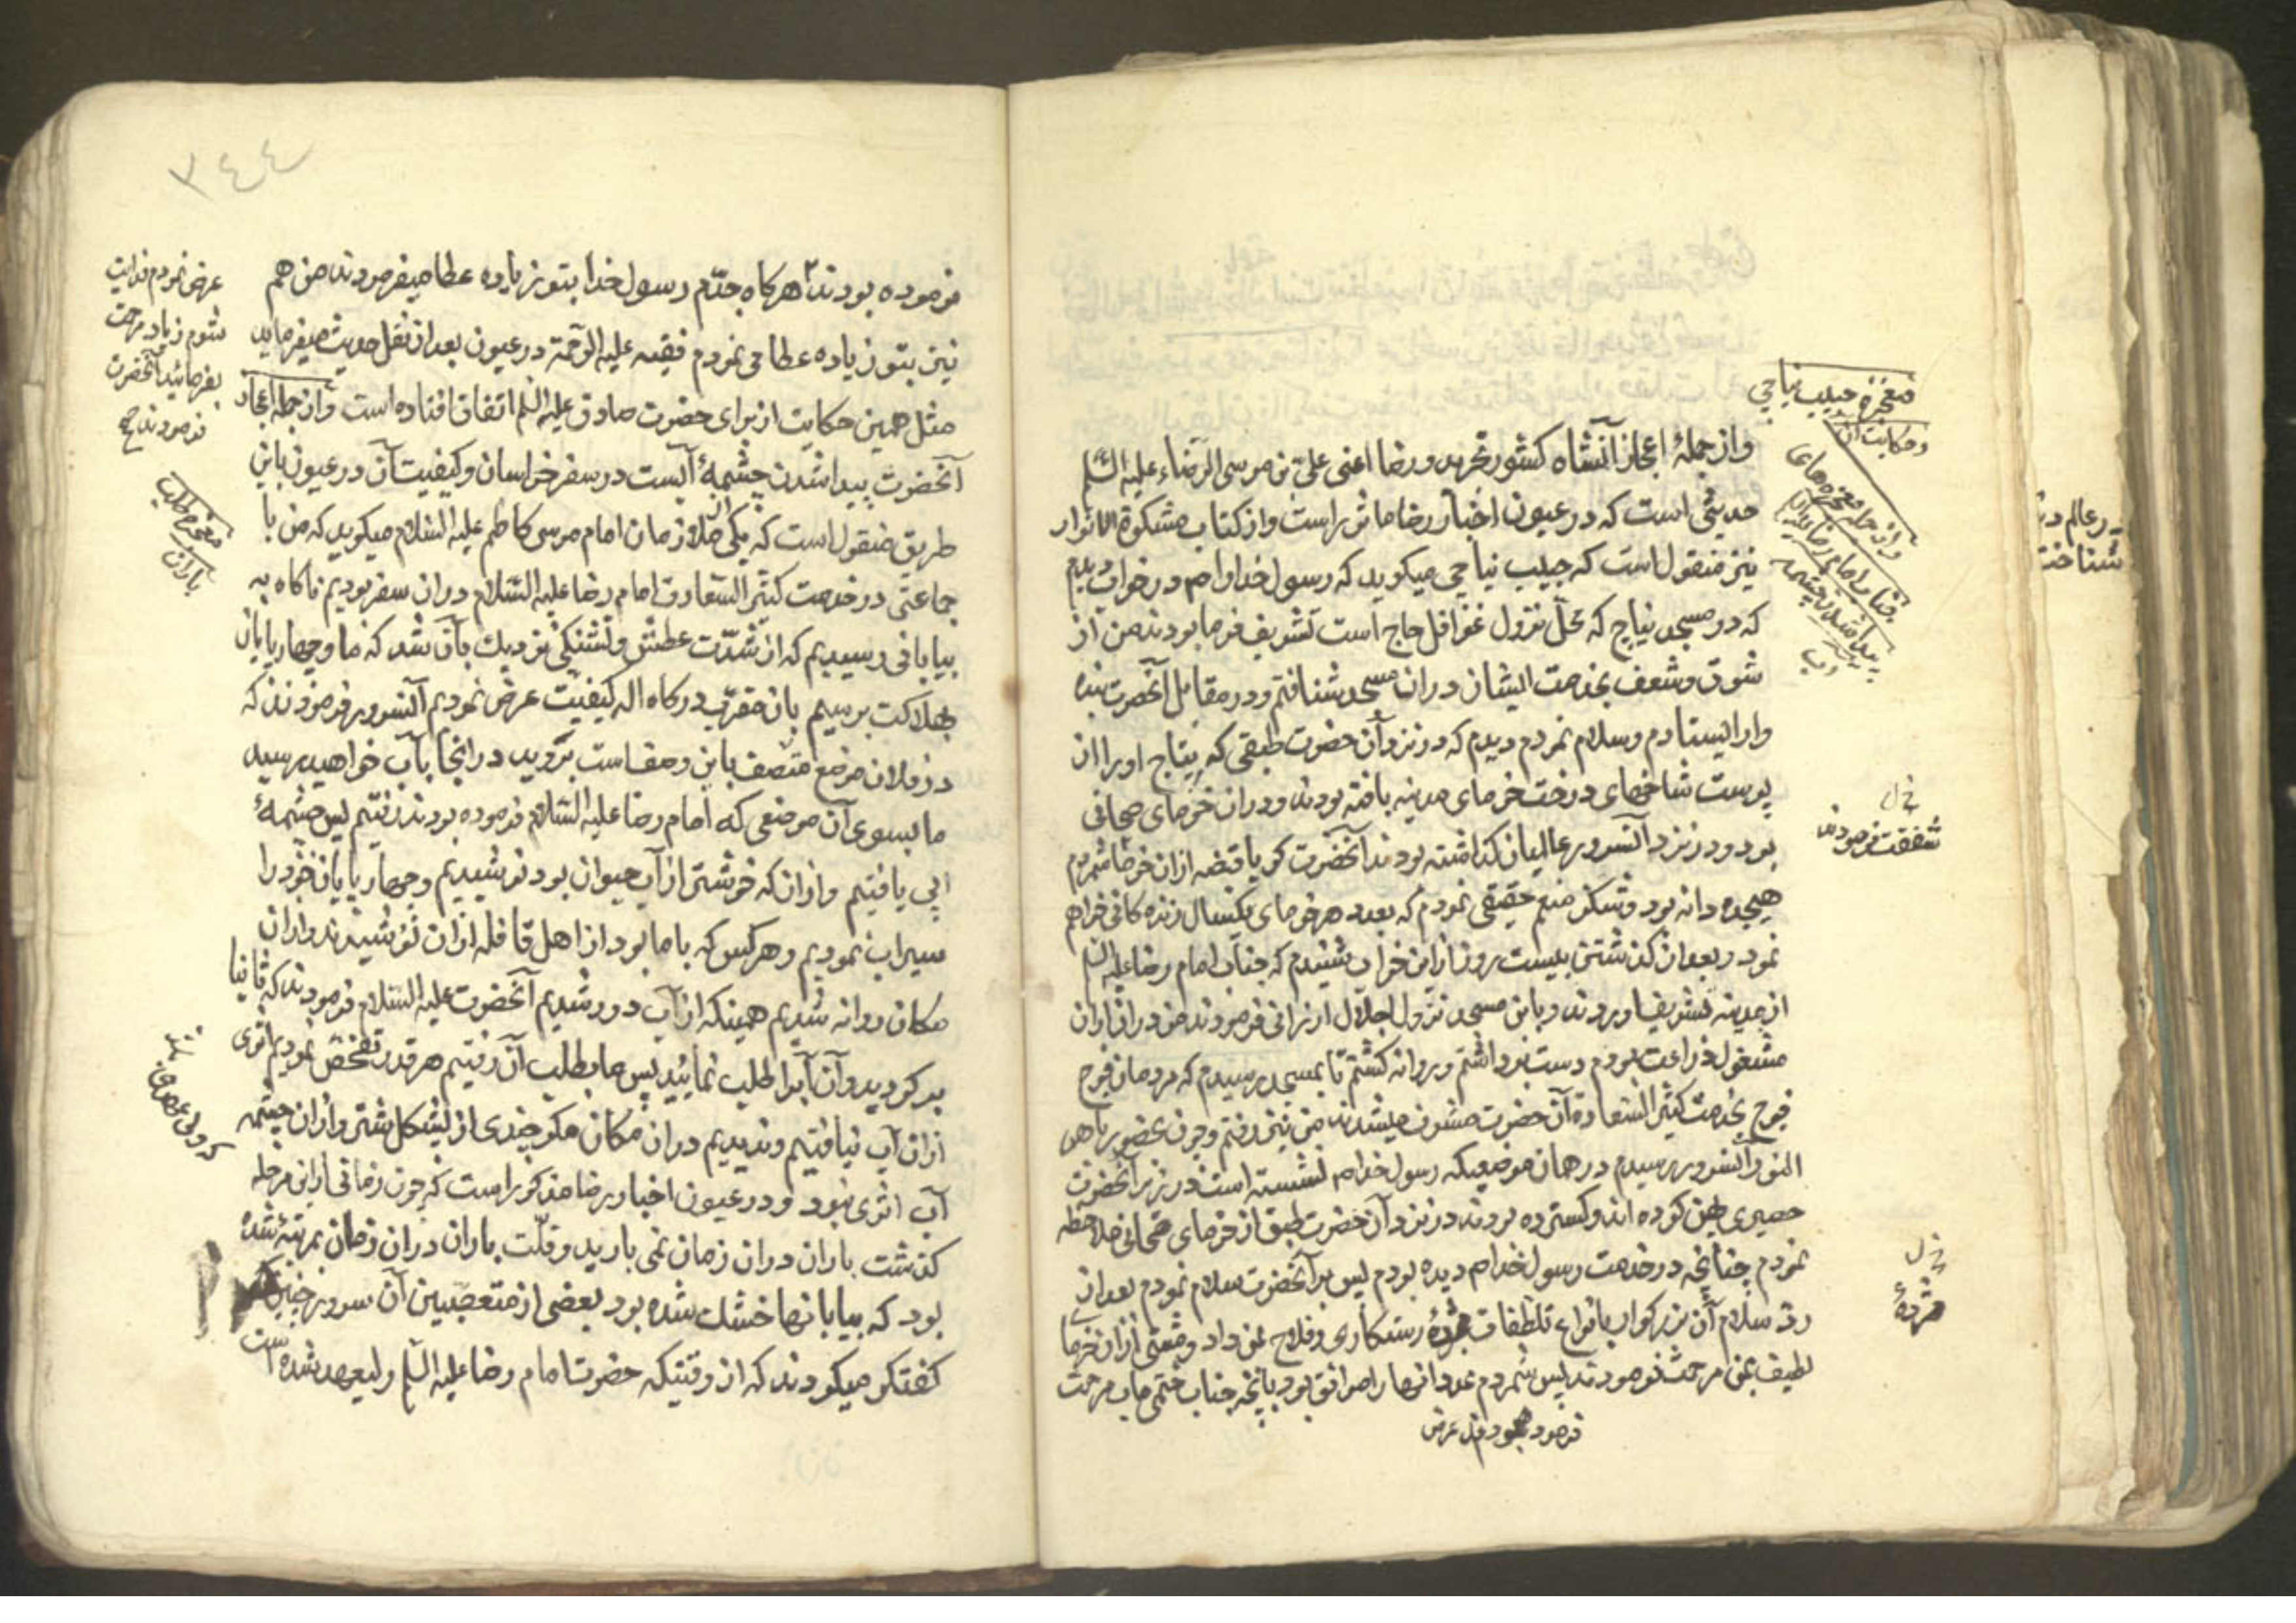 معجزه حبیب نیاجی
وحکایت آن
واز جمله معجزه‌های
جناب امام رضا علیه
پیدا شدن چشمه
آب
واز جملهٔ اعجاز آنشاه کشور تجرید ورضا اعنی علی بن موسی الرضاء علیه السلم
حدیثی است که در عیون اخبار رضا ماثور است واز کتاب مشکوة الانوار
نیز منقول است که حبیب نیاجی میکوید که رسول خدا را ص در خواب دیدم
که در مسجد نیاج که محل نزول قوافل حاج است تشریف فرما بودند من از
شوق وشعف بخدمت ایشان دران مسجد شتافتم ودر مقابل آنحضرت بنده
وار ایستادم وسلام نمودم دیدم که در نزد آن حضرت طبقی که بتاج اورا از
پوست شاخهای درخت خرمای مدینه بافته بودند ودران خرمای صیحانی
بود ودر نزد آنسرور عالمیان کذاشته بودند آنحضرت کویا قبضه ازان خرما شمردم
شفقت فرمودند
هیجده دانه بود وشکر منعم حقیقی نمودم که بعدد هر خرمای یکسال زنده کانی خواهم
نمود وبعد از کذشتن بیست روز ازاین خواب شنیدم که جناب امام رضا علیه السلم
از مدینه تشریف اوردند وباین مسجد نزول اجلال ارزانی فرمودند من دران اوان
مشغول زراعت بودم دست برداشتم وروانه کشتم تا بمسجد رسیدم که مردمان فوج
فوج بخدمت کثیر السعادة آن حضرت مشرف میشدند من نیز رفتم وچون بحضور باهر
النور آنسرور رسیدم در همان موضعیکه رسول خدا ص نشسته است در زیر آنحضرت
حصیری پهن کرده اند وکسترده بودند در نزد آن حضرت طبق از خرمای صیحانی ملاحظه
نمودم چنانچه در خدمت رسول خدا ص دیده بودم پس بر آنحضرت سلام نمودم بعد از
رد سلام آن بزرکوار بانواع تلطفات مژدهٔ رستکاری وفلاح بمن داد ومشتی ازان خرما
مژدهٔ
لطیف بمن مرحمت فرمودند پس شمردم عدد انها را موافق بود بانچه جناب ختمی مآب مرحمت
فرموده بود پس عرض
٣٤٤
عرض نمودم فدایت
شوم زیاد مرحمت
بفرمائید آنحضرت
فرمودند چه
فرموده بودند هرکاه جدّم رسول خدا بتو زیاده عطا میفرمودند من هم
نیز بتو زیاده عطا می نمودم فقیه علیه الرحمة در عیون بعد از نقل حدیث میفرماید
مثل همین حکایت از برای حضرت صادق علیه السلم اتفاق افتاده است واز جمله اعجاز
آنحضرت پیدا شدن چشمهٔ آبست در سفر خراسان وکیفیت آن در عیون باین
طریق منقول است که یکی از ملازمان امام موسی کاظم علیه السلام میکوید که من با
معجزه طلب
باران
جماعتی در خدمت کثیر السعادة امام رضا علیه السلام دران سفر بودیم ناکاه به
بیابانی رسیدیم که از شدّت عطش وتشنکی نزدیک بآن شد که ما وچهارپایان
بهلاکت برسیم بان مقرّب درکاه اله کیفیّت عرض نمودیم آنسرور فرمودند که
در فلان موضع متصف باین وصف است بروید در انجا بآب خواهید رسید
ما بسوی آن موضعی که امام رضا علیه السلام فرموده بودند رفتیم پس چشمهٔ
آبی یافتیم وازان که خوشتر از آب حیوان بود نوشیدیم وچهارپایان خود را
سیراب نمودیم وهرکس که با ما بود از اهل قافله ازان نوشیدند وازان
مکان روانه شدیم همینکه از آب دور شدیم آنحضرت علیه السلام فرمودند که ثانیا
برکردید وآن آب را طلب نمائید پس ما بطلب آن رفتیم هر قدر تفحّص نمودیم اثری
ازان آب نیافتیم وندیدیم دران مکان مکر چندی از پشکل شتر وازان چشمه
آب اثری نبود ودر عیون اخبار رضا مذکور است که چون زمانی ازاین مرحله
کذشت باران دران زمان نمی بارید وقلّت باران دران زمان بمرتبهٔ شده
بود که بیابانها خشک شده بود بعضی از متعصّبین آن سرور چنین
کفتکو میکردند که از وقتیکه حضرت امام رضا علیه السلم ولیعهد شده است